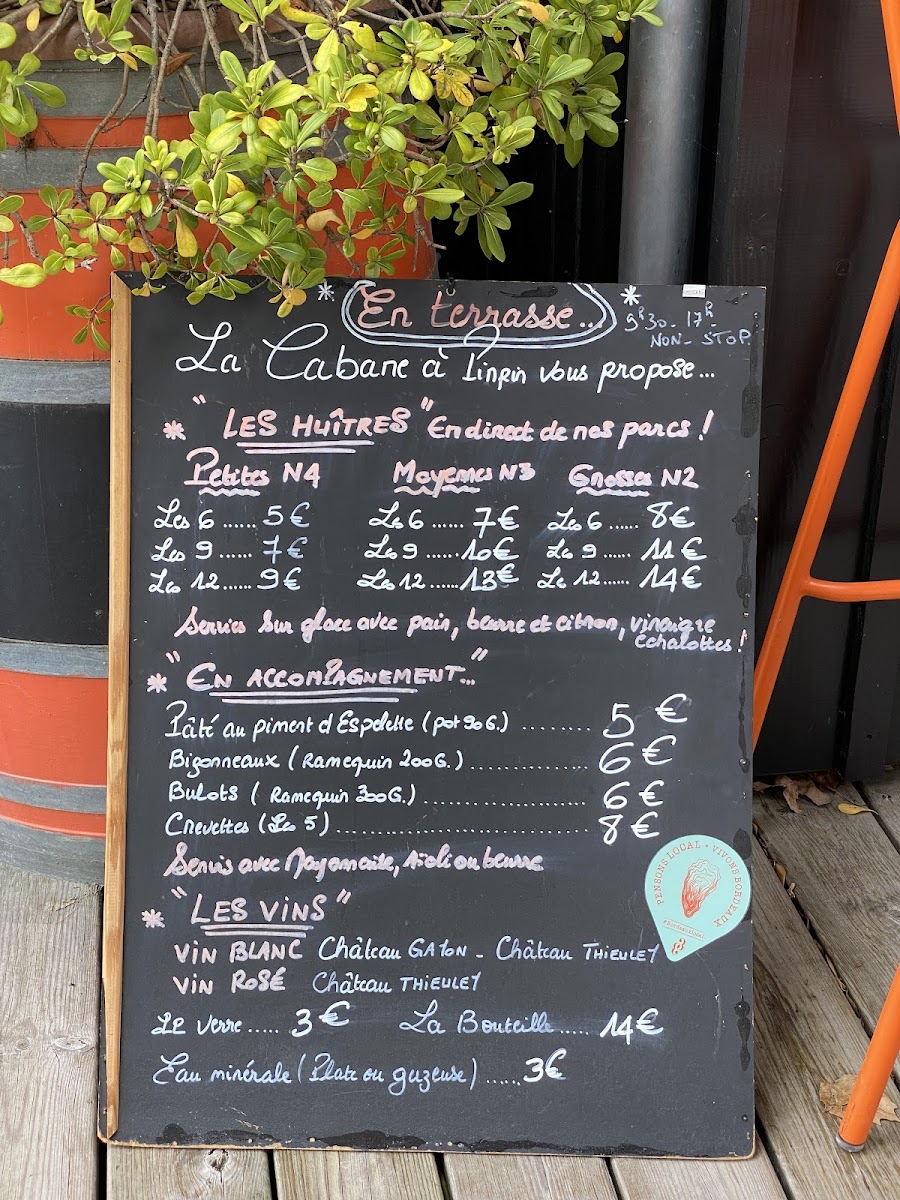 En terrasse...
9h30 - 17h -
NON - STOP
La Cabane à Pinpin vous propose...
* "LES HUÎTRES" En direct de nos parcs !
Petites N4 Moyennes N3 Grosses N2
Les 6 ...... 5€ Les 6 ...... 7€ Les 6 ...... 8€
Les 9 ...... 7€ Les 9 ...... 10€ Les 9 ...... 11€
Les 12 ...... 9€ Les 12 ...... 13€ Le 12 ...... 14€
Servies sur glace avec pain, beurre et citron, vinaigre
échalottes !
* "EN ACCOMPAGNEMENT..."
Pâté au piment d'Espelette (pot 90G.) ......... 5€
Bigonneaux (Ramequin 200G.) ............... 6€
Bulots (Ramequin 300G.) .................... 6€
Crevettes (Les 5) ............................... 8€
Servis avec Mayonnaise, Aïoli ou beurre
PENSONS LOCAL • VIVONS BORDEAUX
* "LES VINS"
VIN BLANC Château GAYON - Château THIEULEY
VIN ROSÉ Château THIEULEY
Le verre ..... 3€ La Bouteille ..... 14€
Eau minérale (Plate ou gazeuse) ...... 3€